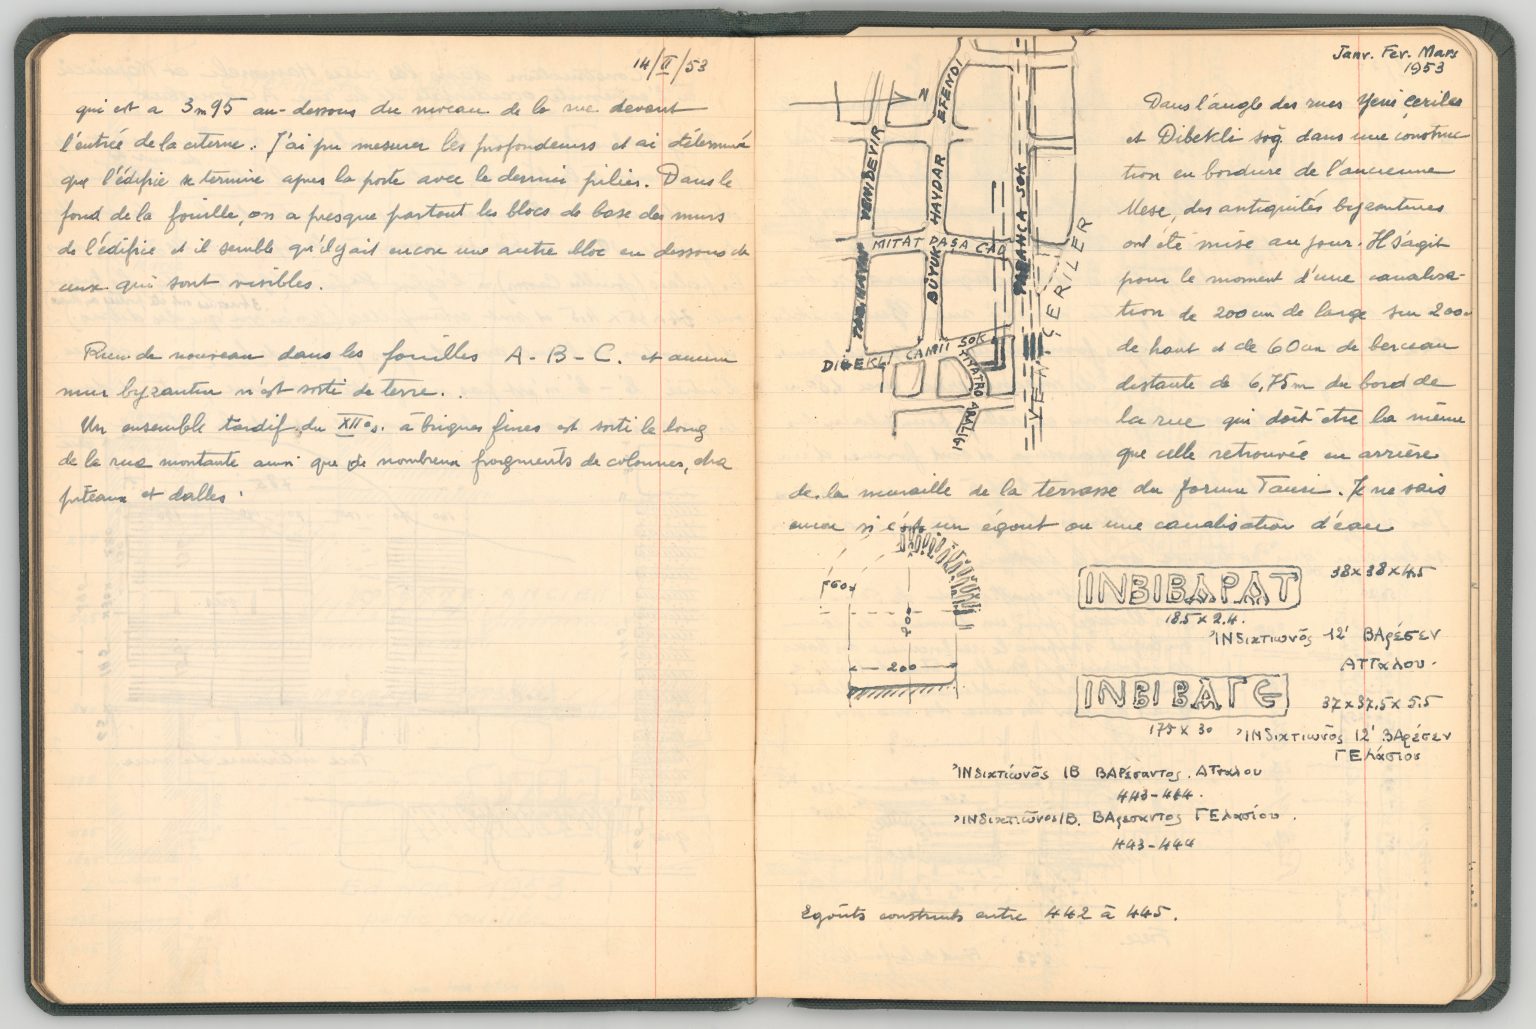 14/II/53
qui est a 3m95 au-dessous du niveau de la rue devant
l'entrée de la citerne. J'ai pu mesurer les profondeurs et ai déterminé
que l'édifice se termine apres la porte avec le dernier pilier. Dans le
fond de la fouille, on a presque partout les blocs de base des murs
de l'édifice et il semble qu'il y ait encore une autre bloc en dessous de
ceux qui sont visibles.
Rien de nouveau dans les fouilles A-B-C. et aucun
mur byzantin n'est sorti de terre.
Un ensemble tardif du XIIe s. à briques fines est sorti le long
de la rue montante ainsi que de nombreux fragments de colonnes, cha
piteaux et dalles.
Janv. Fev. Mars
1953
N
EFENDI
YENIDEVIR
HAYDAR
BÜYÜK
MITAT PAŞA CAD
YABANCA SOK
YENI ÇERILER
DIBEKLI CAMII SOK
TIYATRO ARALIGI
Dans l'angle des rues Yeni çeriler
et Dibekli soğ. dans une construc
tion en bordure de l'ancienne
Mese, des antiquités byzantines
ont été mise au jour. Il s'agit
pour le moment d'une canalisa-
tion de 200 cm de large sur 200
de haut et de 60 cm de berceau
distante de 6,75m du bord de
la rue qui doit etre la même
que celle retrouvée en arrière
de la muraille de la terrasse du forum Tauri. Je ne sais
encore si c'est un égout ou une canalisation d'eau
60
200
200
INBIBAPAT
38x38x4.5
18.5 x 2.4.
Ἰνδικτιωνος 12' ΒΑρέσεν
ΑΤΤαλου.
INBIBAΓE
37x37,5x5.5
175 x 30
Ἰνδικτιωνος 12' ΒΑρέσεν
ΓΕλάσιος
Ἰνδικτιωνος ΙΒ ΒΑΡέσαντος. ΑΤταλου
443-444.
Ἰνδικτιωνος ΙΒ. ΒΑρεσαντος ΓΕλασίου.
443-444
Egoûts construits entre 442 à 445.